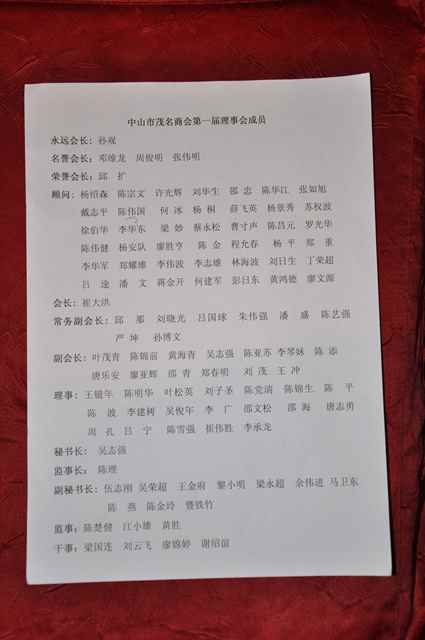 中山市茂名商会第一届理事会成员
永远会长：孙观
名誉会长：邓雄龙 周俊明 张伟明
荣誉会长：邱 扩
顾问：杨绍森 陈宗文 许光辉 刘华生 邵 忠 陈华江 张如旭
戴志平 陈伟国 何 冰 杨 桐 薛飞英 杨景秀 苏权波
徐伯华 李华东 梁 妙 蔡永松 曹寸声 陈昌元 罗光华
陈伟健 杨安队 廖胜亨 陈 金 程允春 杨 平 郑 重
李华军 郑耀雄 李伟波 李志雄 林海波 刘日生 丁荣超
吕 逵 潘 文 蒋金开 何建军 彭日东 黄鸿德 廖文源
会长：崔大洪
常务副会长：邱 那 刘晓光 吕国球 朱伟强 潘 盛 陈艺强
严 坤 孙博文
副会长：叶茂青 陈锦前 黄海青 吴志强 陈亚苏 李琴妹 陈 添
唐乐安 廖亚辉 邵 青 郑春明 刘 茂 王 冲
理事：王镜年 陈明华 叶松英 刘子圣 陈党清 陈锦生 陈 平
陈 波 李建树 吴俊年 李 广 邵文松 邵 海 唐志勇
周 孔 吕 宁 陈雪强 崔伟胜 李承龙
秘书长： 吴志强
监事长： 陈理
副秘书长：伍志刚 吴荣超 王金府 黎小明 梁永超 余伟进 马卫东
陈 燕 陈金玲 暨铁竹
监事：陈楚健 江小雄 黄胜
干事：梁国连 刘云飞 廖锦婷 谢绍前